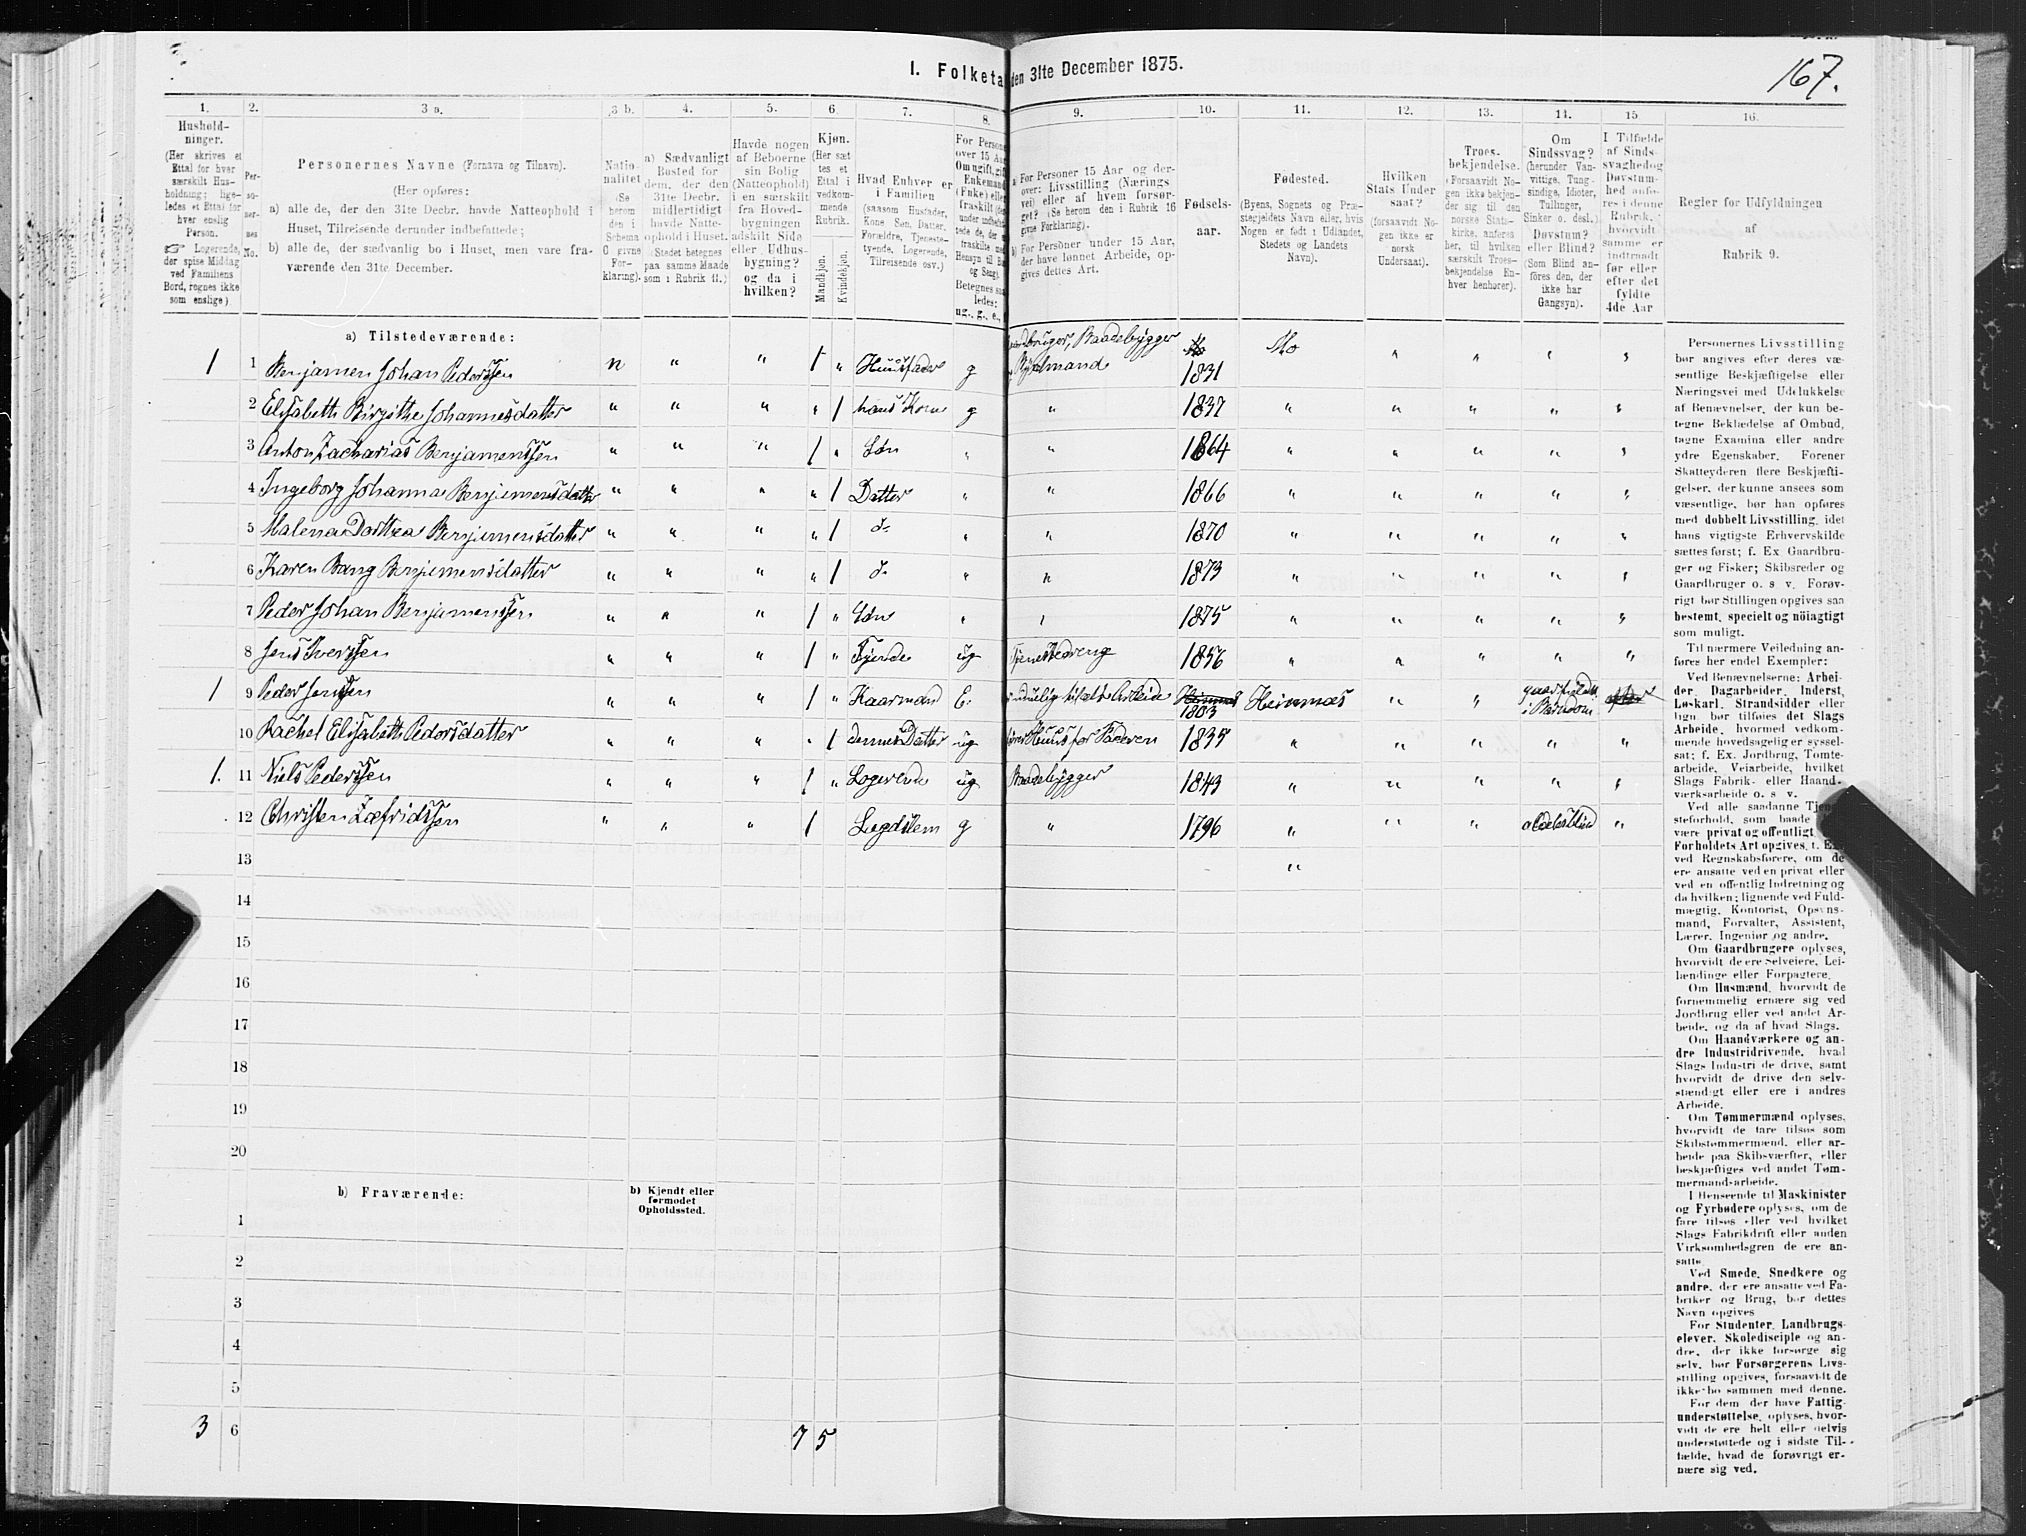 167.
I. Folketæ den 31te December 1875.
1. 2. 3 a. 3 b. 4. 5. 6. 7. 8. 9. 10. 11. 12. 13. 14. 15 16.
Hushold-
ninger.
(Her skrives et
Ettal for hver
særskilt Hus-
holdning; lige-
ledes et Ettal for
hver enslig
Person.
☞ Logerende,
der spise Middag
ved Familiens
Bord, regnes ikke
som enslige).
Per-
so-
ner-
nes
No.
Personernes Navne (Fornavn og Tilnavn).
(Her opføres:
a) alle de, der den 31te Decbr. havde Natteophold i
Huset, Tilreisende derunder indbefattede;
b) alle de, der sædvanlig bo i Huset, men vare fra-
værende den 31te December.
Natio-
nalitet
(Se
herom
den i
Schema
givne
For-
klaring).
a) Sædvanligt
Bosted for
dem, der den
31te Decbr.
midlertidigt
havde Natte-
ophold i Huset.
(Stedet betegnes
paa samme Maade
som i Rubrik 11.)
Havde nogen
af Beboerne
sin Bolig
(Natteophold)
i en særskilt
fra Hoved-
bygningen
adskilt Side
eller Udhus-
bygning?
og da i
hvilken?
Kjøn.
(Her sæt
tes et
Ettal i
vedkom-
mende
Rubrik.
Mandkjøn.
Kvindekjøn.
Hvad Enhver er
i Familien
(saasom Husfader,
Kone Søn, Datter,
Forældre, Tjeneste-
tyende, Logerende,
Tilreisende osv.)
For Persone
over 15 Aa
Om ugift, gift
Enkemand
(Fnke) eller
fraskilt
Betegnes saa
ledes:
ug., g., e.,
a) For Personer 15 Aar og der-
over: Livsstilling (Nærings-
vei) eller af hvem forsør-
get? (Se herom den i Rubrik 16
givne Forklaring).
b) For Personer under 15 Aar,
der have lønnet Arbeide, op-
gives dettes Art.
Fødsels-
aar.
Fødested.
(Byens, Sognets og Præ-
stegjeldets Navn eller, hvis
Nogen er født i Udlandet,
Stedets og Landets
Navn).
Hvilken
Stats Under
saat?
(forsaavidt No-
gen ikke er
norsk
Undersaat).
Troes-
bekjendelse.
(Forsaavidt No-
gen ikke bekjen-
der sig til den
norske Stats-
kirke, anføres
her, til hvilken
særskilt Troes-
bekjendelse En-
hver henhører).
Om
Sindssvag?
(herunder Van-
vittige, Tung-
sindige, Idioter,
Tullinger,
Sinker o. desl.)
Døvstum?
eller Blind?
(Som Blind an-
føres den, der
ikke har
Gangsyn).
I Tilfælde
af Sinds-
svaghed og
Døvstum-
hed anfø-
res i denne
Rubrik,
hvorvidt
samme er
indtraadt
før eller
efter det
fyldte
4de Aar
Regler for Udfyldningen
af
Rubrik 9.
a) Tilstedeværende:
1 1 Benjamen Johan Pederssen n " " 1 " Huusfader g Baadebygger 1831 Mo " " " "
2 Elisabeth Birgithe Johannesdatter " " " " 1 hans Kone g " 1837 " " " " "
3 Anton Zacharias Benjamenssen " " " 1 " Søn " " 1864 " " " " "
4 Ingeborg Johanna Benjamensdatter " " " " 1 Datter " " 1866 " " " " "
5 Malena Dorthea Benjamensdatter " " " " 1 d. " " 1870 " " " " "
6 Karen Bang Benjamensdatter " " " " 1 d. " " 1873 " " " " "
7 Peder Johan Benjamenssen " " " 1 " Søn " " 1875 " " " " "
8 Jens Iverssen " " " 1 " Tjende ug Tjenestedreng 1856 " " " " "
1 9 Peder Jenssen " " " 1 " Kaarmand E. 1803 Hemnæs " " i Barndom
10 Rachel Elisabeth Pedersdatter " " " " 1 dennes Datter ug Huus for Faderen 1835 " " " " "
1. 11 Niels Pederssen " " " 1 " Logerende ug Baadebygger 1843 " " " " "
12 Christen Zæfridssen " " " 1 Lægdslem g " 1796 " " " "
13 "
14
15
16
17
18
19
20
b) Fraværende:
b) Kjendt eller
formodet
Opholdssted.
1
2
3
4
5
3 6 7 5
Personernes Livsstilling
bør angives efter deres væ-
sentlige Beskjæftigelse eller
Næringsvei med Udelukkelse
af Benævnelser, der kun be-
tegne Beklædelse af Ombud,
tagne Examina eller andre
ydre Egenskaber. Forener
Skatteyderen flere Beskjæfti-
gelser, der kunne ansees som
væsentlige, bør han opføres
med dobbelt Livsstilling, idet
hans vigtigste Erhvervskilde
sættes først; f. Ex Gaardbru-
ger og Fisker; Skibsreder og
Gaardbruger o. s v. Forøv-
rigt bør Stillingen opgives saa
bestemt, specielt og nöiagtigt
som muligt.
Til nærmere Veiledning an-
føres her endel Exempler:
Ved Benævnelserne: Arbei-
der, Dagarbeider, Inderst,
Løskarl, Strandsidder eller
lign. bør tilføies det Slags
Arbeide, hvormed vedkom-
mende hovedsagelig er syssel-
sat; f. Ex. Jordbrug, Tømte-
arbeide, Veiarbeide, hvilket
Slags Fabrik- eller Haand-
værksarbeide o. s v.
Ved alle saadanne Tjene-
steforhold, som baade
være privat og offentlig
Forholdets Art opgives, t. Ex
ved Regnskabsførere, om de
ere ansatte ved en privat eller
ved en offentlig Indretning og
da hvilken; lignende ved Fuld-
mægtig, Kontorist, Opsyns-
mand, Forvalter, Assistent,
Lærer, Ingeniør og andre.
Om Gaardbrugere oplyses,
hvorvidt de ere Selveiere, Lei-
lændinge eller Forpagtere.
Om Husmænd, hvorvidt de
fornemmelig ernære sig ved
Jordbrug eller ved andet Ar-
beide, og da af hvad Slags.
Om Haandværkere og an-
dre Industridrivende, hvad
Slags Industri de drive, samt
hvorvidt de drive den selv-
stændigt eller ere i andres
Arbeide.
Om Tømmermænd oplyses,
hvorvidt de fare tilsøs som
Skibstømmermænd, eller ar-
beide paa Skibsværfter, eller
beskjæftiges ved andet Tøm-
mermandsarbeide.
I Henseende til Maskinister
og Fyrbødere oplyses, om de
fare tilsøs eller ved hvilket
Slags Fabrikdrift eller anden
Virksomhedsgren de ere an-
satte.
Ved Smede, Snedkere og
andre, der ere ansatte ved Fa-
briker og Brug, bør dettes
Navn opgives
For Studenter, Landbrugs-
elever, Skoledisciple og an-
dre, der ikke forsørge sig
selv, bør Forsørgerens Livs-
stilling opgives, forsaavidt de
ikke bo sammen med denne.
For dem, der have Fattig-
understøttelse, oplyses, hvor-
vidt de ere helt eller delvis
understøttede og i sidste Til-
fælde, hvad de forøvrigt er-
nære sig ved.